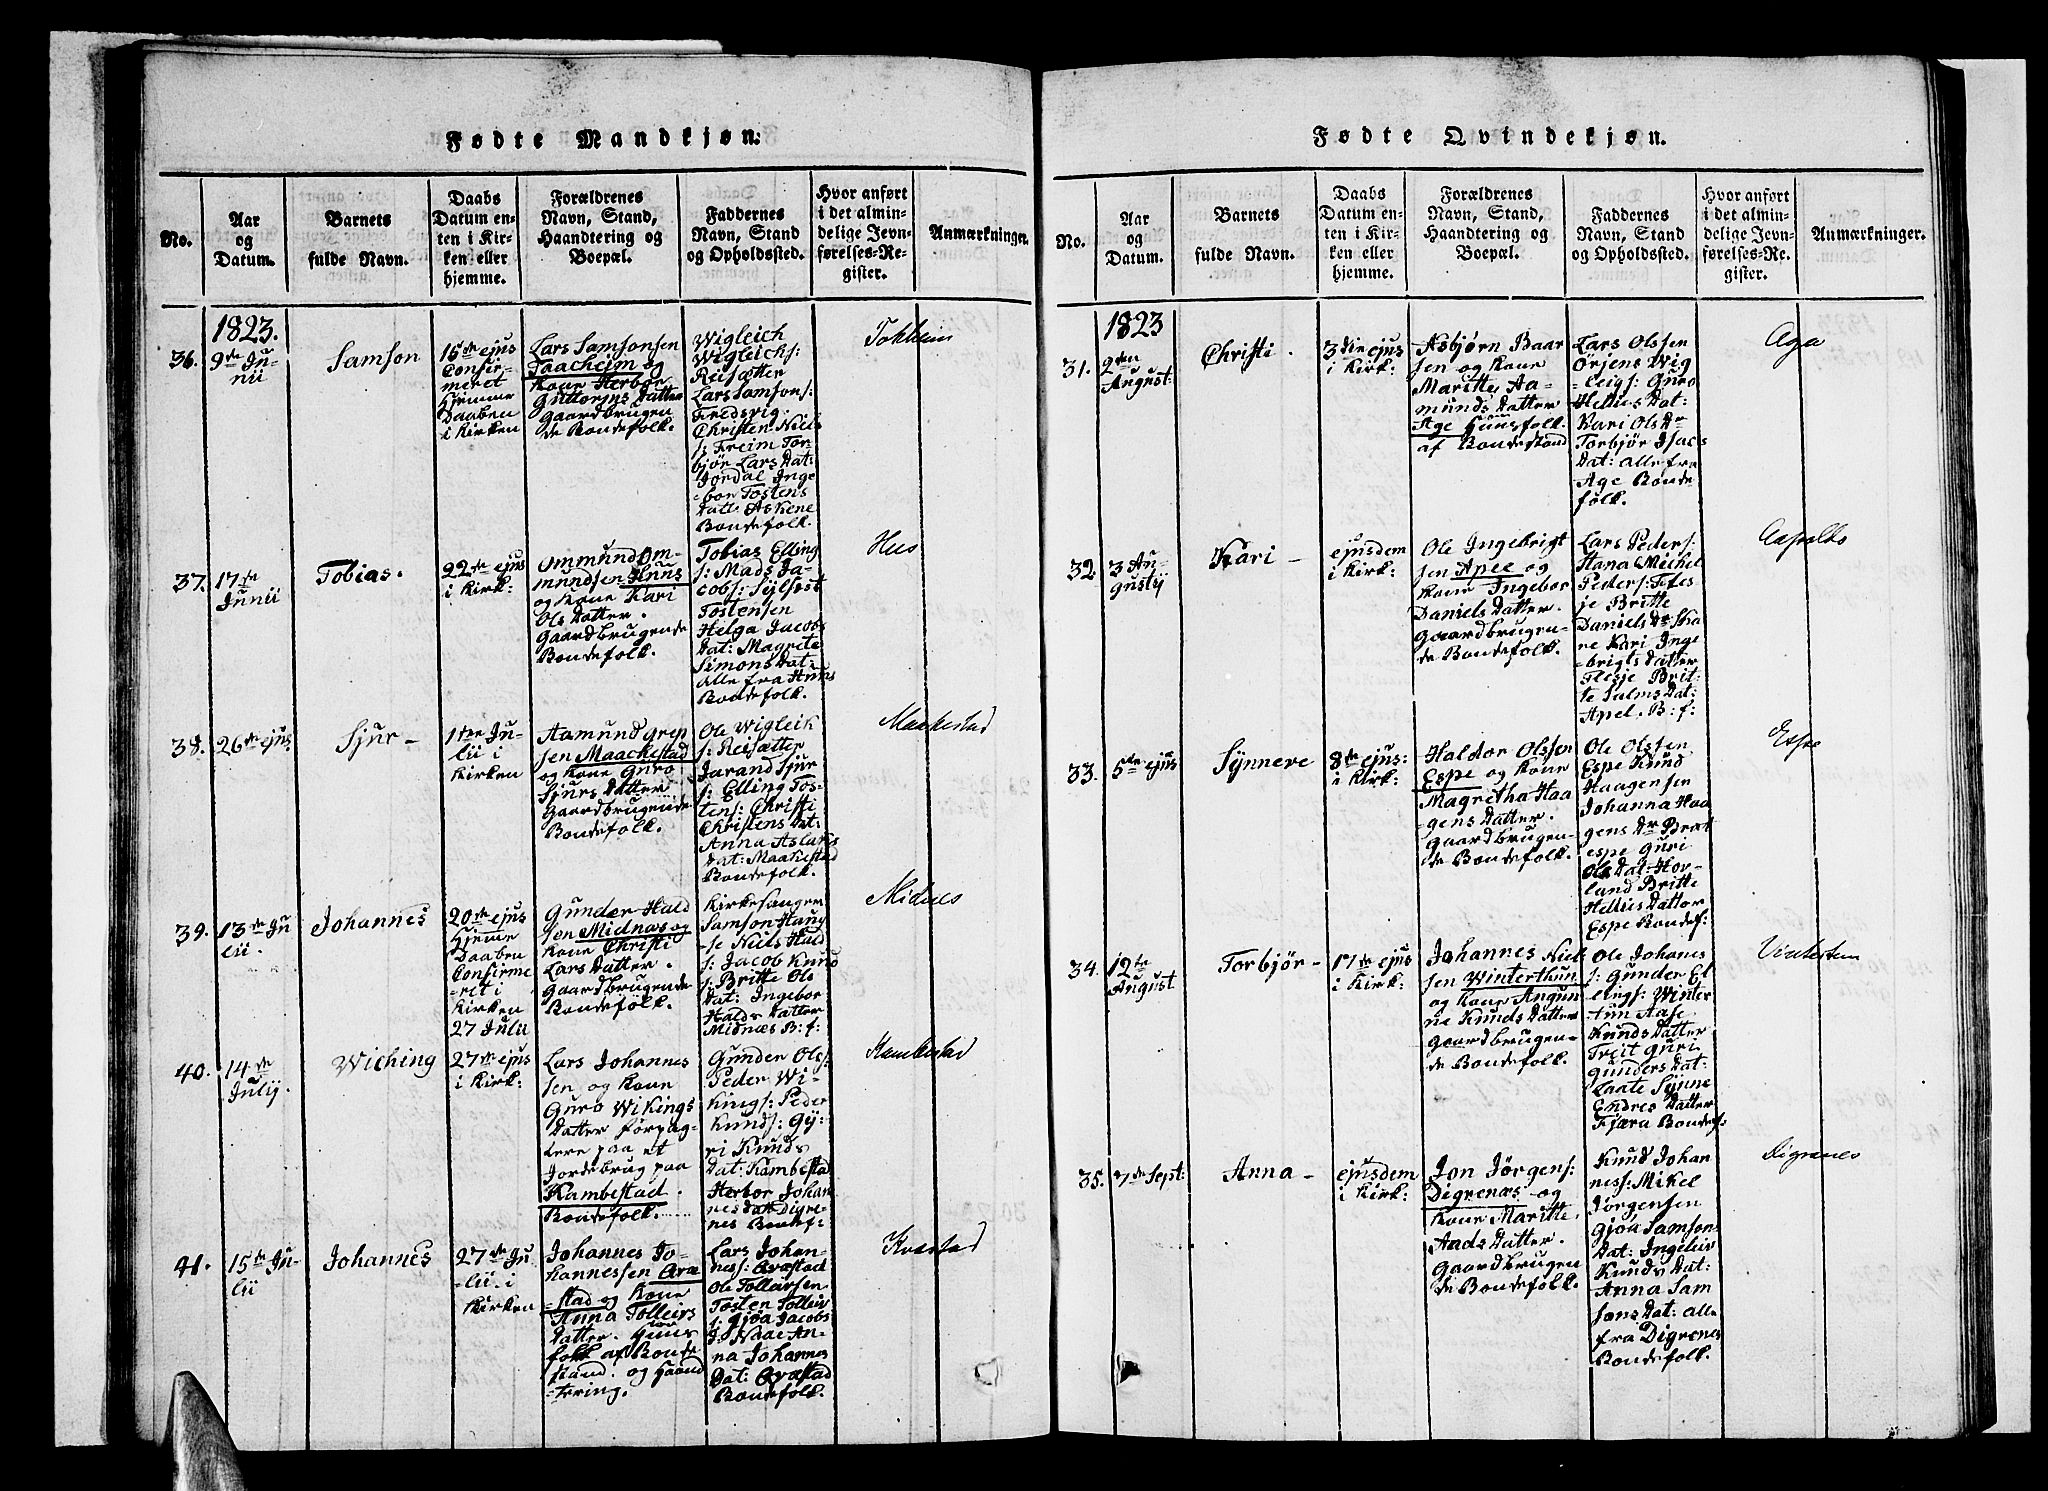 Fødte Mandkjøn:
No.
Aar
og
Datum.
Barnets
fulde Navn.
Daabs
Datum en-
ten i Kir-
ken eller
hjemme.
Forældrenes
Navn, Stand,
Haandtering og
Boepæl.
Faddernes
Navn, Stand
og Opholdssted.
Hvor anført
i det almin-
delige Jevn-
førelses-Re-
gister.
Anmærkninger.
1823.
36.
9de Ju-
nii
Samson
15de ejus
Confir-
meret
Hjemme
Daaben
i Kirken
Lars Samsonsen
Taacheim og
Kone Herbor
Guttorms Datter
Gaardbrugen
de Bondefolk.
Wigleich
Wigleichs:
Reisætter
Lars Samsons:
Fredsvig.
Christen Niels
s: Freim Tor-
bjør Lars Dat:
Jordal Inge
-bor Tostens
Datt: Askene
Bondefolk.
Tokheim
37.
17de
Junii
Tobias.
22de ejus
i Kirk:
Ommund Om-
mundsen Huus
og Kone Kari
Ols Datter.
Gaardbrugende
Bondefolk.
Tobias Elling
s: Mads Ja-
cobs: Sylfest
Tostensen
Helga Jacobs
Dat: Magrete
Simons Dat:
alle fra Huus
Bondefolk.
Hus
38.
26de ejus
Sjur -
1ste Ju-
lii i
Kirken
Aamund Grep
sen Maachestad
og Kone Guro
Sjurs Datter
Gaardbrugende
Bondefolk.
Ole Wigleik
s: Reisætter
Jarand Sjur
s: Elling Tos-
tens: Christi
Christens Dat:
Anna Aslaks
Dat: Maakestad
Bondefolk.
Maakestad
39.
13de Ju-
lii.
Johannes
20de ejus
Hjeme
Daaben
Confirme
-ret i
Kirken
27 Julii
Gunder Hald
sen Midnæs og
Kone Christi
Lars Datter.
Gaardbrugende
Bondefolk.
Kirkesanger
Samson Haug
se Niels Hald
s: Jacob Knud
s: Britte Ols
Dat: Ingebor
Halds Datter
Midnæs B: f:
Midnes
40.
14de
July.
Wiching
27de ejus
i Kirk:
Lars Johannes
sen og Kone
Guro Wikings
Datter Forpag-
tere paa et
Jordebrug paa
Kambestad.
Bondefolk.
Gunder Ols:
Peder Wi-
kings: Peder
Knuds: Gy-
ri Knuds
Dat: Kambestad
Herbor Johan
nes Datt Digre-
nes Bondef:
Kambestad
41.
15de Ju-
lii
Johannes
27de Ju
-lii i
Kirken
Johannes Jo-
hannessen Qvæ
-stad og Kone
Anna Tolleivs
Datter. Huus
folk af Bonde
stand. og Haand
-tering.
Lars Johan-
ness: Qvæstad
Ole Tollufsen
Tosten Tolleiv
s: Gjøa Jacobs
D: Naae An-
na Johannes
Dat: Qvæstad
Bondefolk.
Kvæstad
Fødte Qvindekjøn.
No.
Aar
og
Datum.
Barnets
fulde Navn.
Daabs
Datum en-
ten i Kir-
ken eller
hjemme.
Forældrenes
Navn, Stand,
Haandtering og
Boepæl.
Faddernes
Navn, Stand
og Opholdssted.
Hvor anført
i det almin-
delige Jevn-
førelses-Re-
gister.
Anmærkninger.
1823
31.
2den
August:
Christi.
3die ejus
i Kirk:
Asbjørn Baar
sen og Kone
Maritte Aa-
munds Datter
Age Huusfolk.
af Bondestand
Lars Olssen
Ørjens Wig
-leigs: Guro
Hellies Dat:
Kari Ols Dr
Torbjør Isacs
Dat: alle fra
Age Bonde
folk.
Aga
32
3 Au-
gustij
Kari -
ejusdem
i Kirk:
Ole Ingebrigt
sen Apee og
Kone Ingebor
Daniels Datter.
Gaardbrugen-
de Bondefolk.
Lars Peders:
Hana Michel
Peders: Fles
je Britte
Daniels Dr Ska
re Kari Inge
-brigts Datter
Flesje Brit-
te Salms Dat:
Apel. B: f:
33.
5te ejus
Synneve
8de ejus:
i Kirk:
Haldor Olssen
Espe og Kone
Magretha Haa
-gens Datter.
Gaardbrugen-
de Bondefolk.
Ole Olssen
Espe Knud
Haagensen
Johanna Haa
gens Dr Bræt
espe Guri
Ols Dat: Hov-
land Britte
Hellies Datter
Espe Bondef:
Espe
34.
12te
August
Torbjør -
17de ejus
i Kirk:
Johannes Niel
sen Winterthun
og Kone Angun
ne Knuds Datter
Gaardbrugen-
de Bondefolk.
Ole Johanes
s: Gunder El
lings: Winter
tun Aase
Knuds Datter
Treit Guri
Gunders Dat:
Laate Synne
Endres Datter
Fjæra Bondef:
Vintertun
35.
7de Sept:
Anna -
ejusdem
i Kirk:
Jon Jørgens:
Digrenæs og
Kone Maritte
Aads Datter.
Gaardbrugen
de Bondefolk.
Knud Johan
ness: Mikel
Jørgensen
Gjøa Samson-
Dat: Ingeleiv
Knuds Dat:
Anna Sam
sons Dat: alle
fra Digrenes
Bondefolk.
Digranes